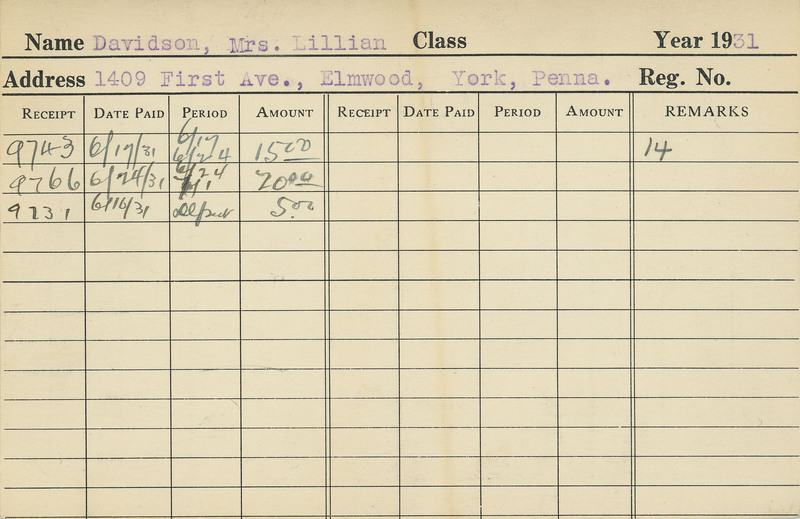 Name Davidson, Mrs. Lillian Class Year 1931
Address 1409 First Ave., Elmwood, York, Penna. Reg. No.
RECEIPT DATE PAID PERIOD AMOUNT RECEIPT DATE PAID PERIOD AMOUNT REMARKS
6/17
9743 6/17/31 6/24 15.00 14
9766 6/24/31 6/24 20.00
7/1
9731 6/16/31 5.00